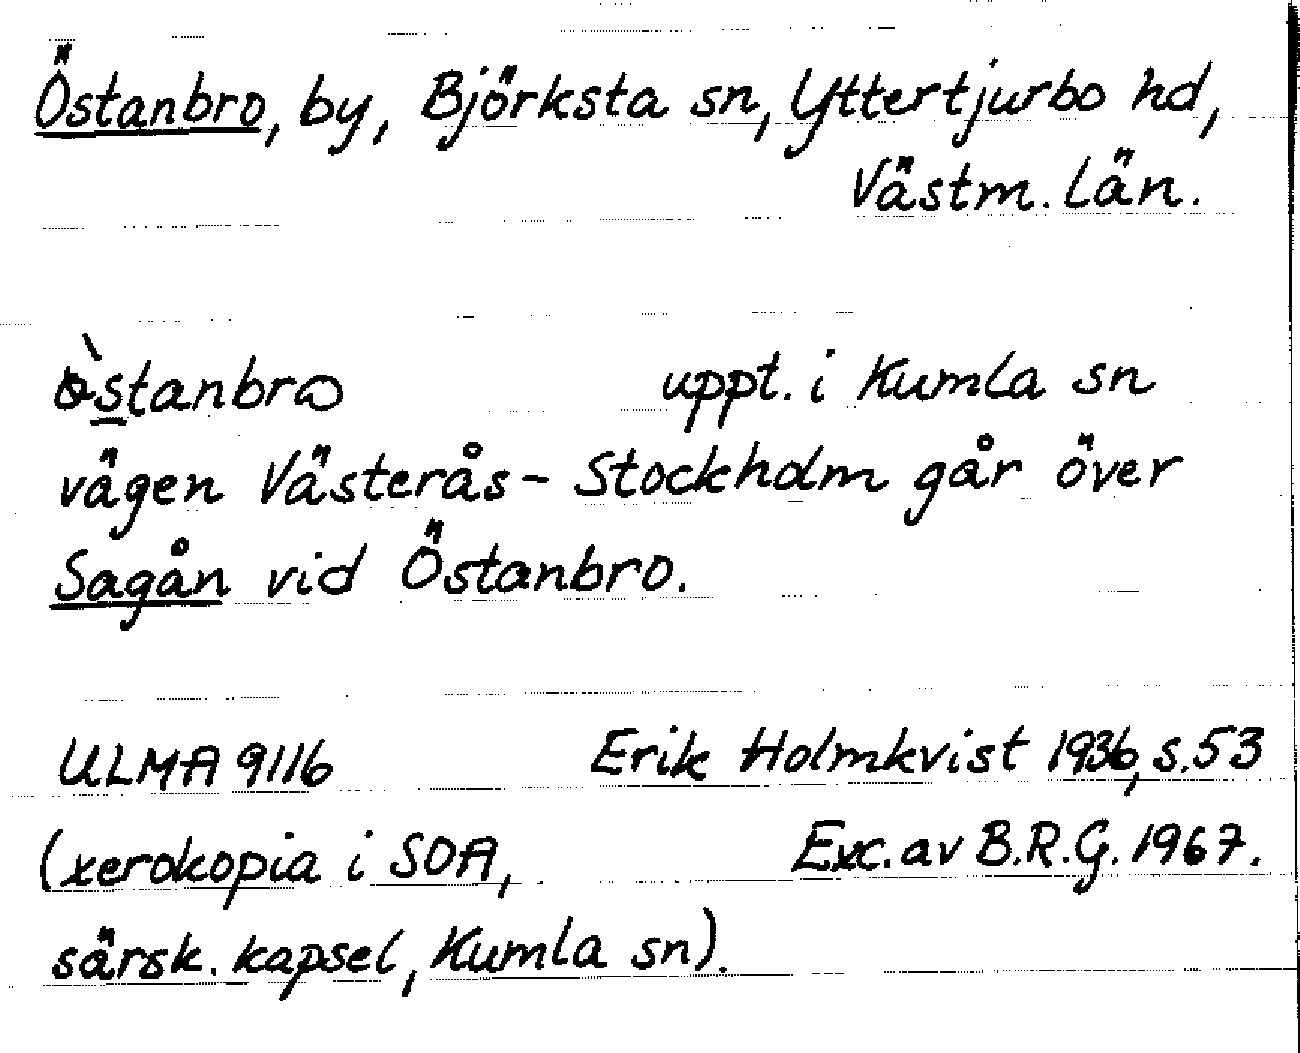 Östanbro, by, Björksta sn, Yttertjurbo hd,
Västm. län.
ɵ̀stanbrɷ uppt. i Kumla sn
vägen Västerås - Stockholm går över
Sagån vid Östanbro.
ULMA 9116 Erik Holmkvist 1936, s. 53
(xerokopia i SOA, Exc. av B.R.G. 1967.
särsk. kapsel, Kumla sn).